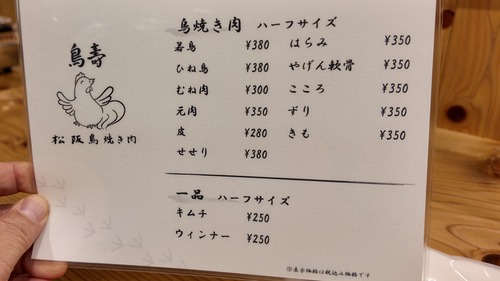 鳥壽
松阪鳥焼き肉
鳥焼き肉 ハーフサイズ
若鳥 ¥380
ひね鳥 ¥380
むね肉 ¥300
元肉 ¥350
皮 ¥280
せせり ¥380
はらみ ¥350
やげん軟骨 ¥350
こころ ¥350
ずり ¥350
きも ¥350
一品 ハーフサイズ
キムチ ¥250
ウィンナー ¥250
※表示価格は税込み価格です